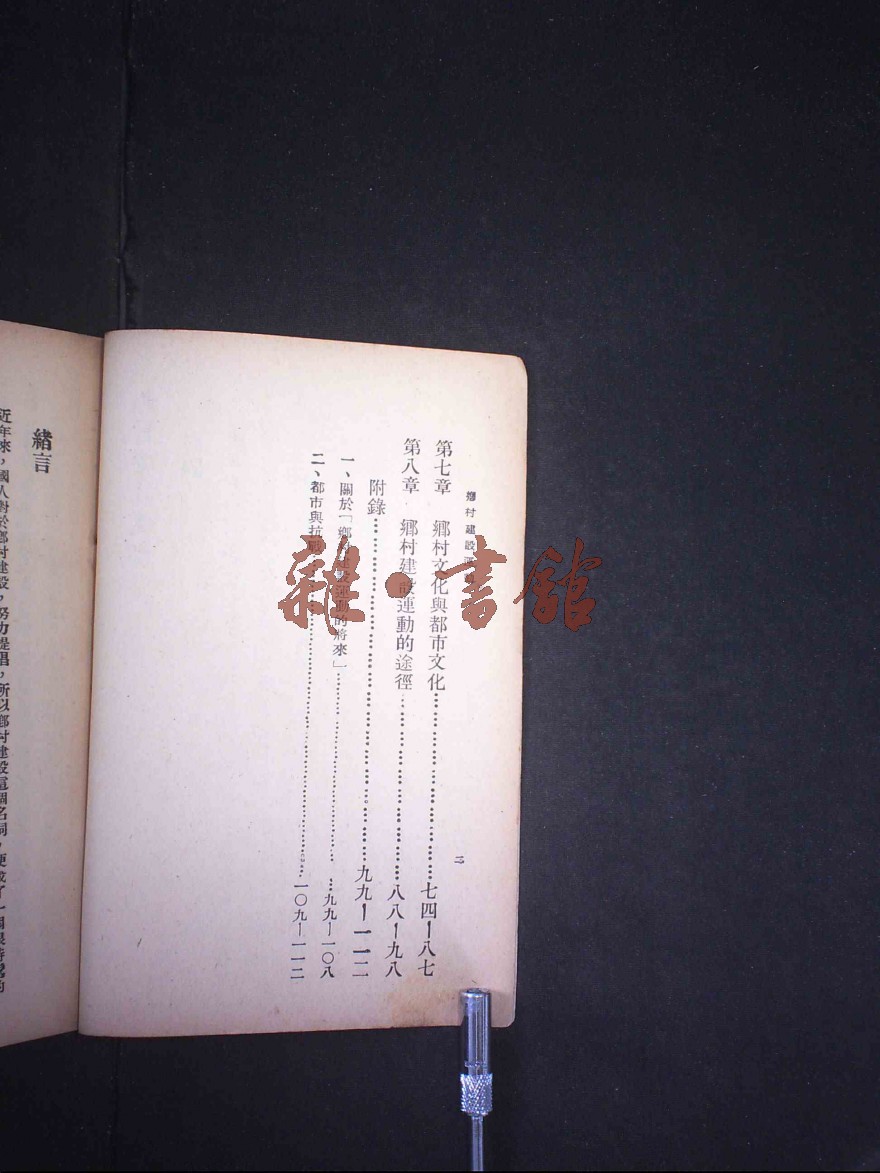 鄉村建設運動
二
第七章 鄉村文化與都市文化……七四—八七
第八章 鄉村建設運動的途徑……八八—九八
附錄……九九—一一二
一、關於「鄉村建設運動的將來」……九九—一〇八
二、都市與抗戰……一〇九—一一二
緒言
近年來，國人對於鄉村建設，努力提倡，所以鄉村建設這個名詞，便成了一個最時髦的
雜·書館